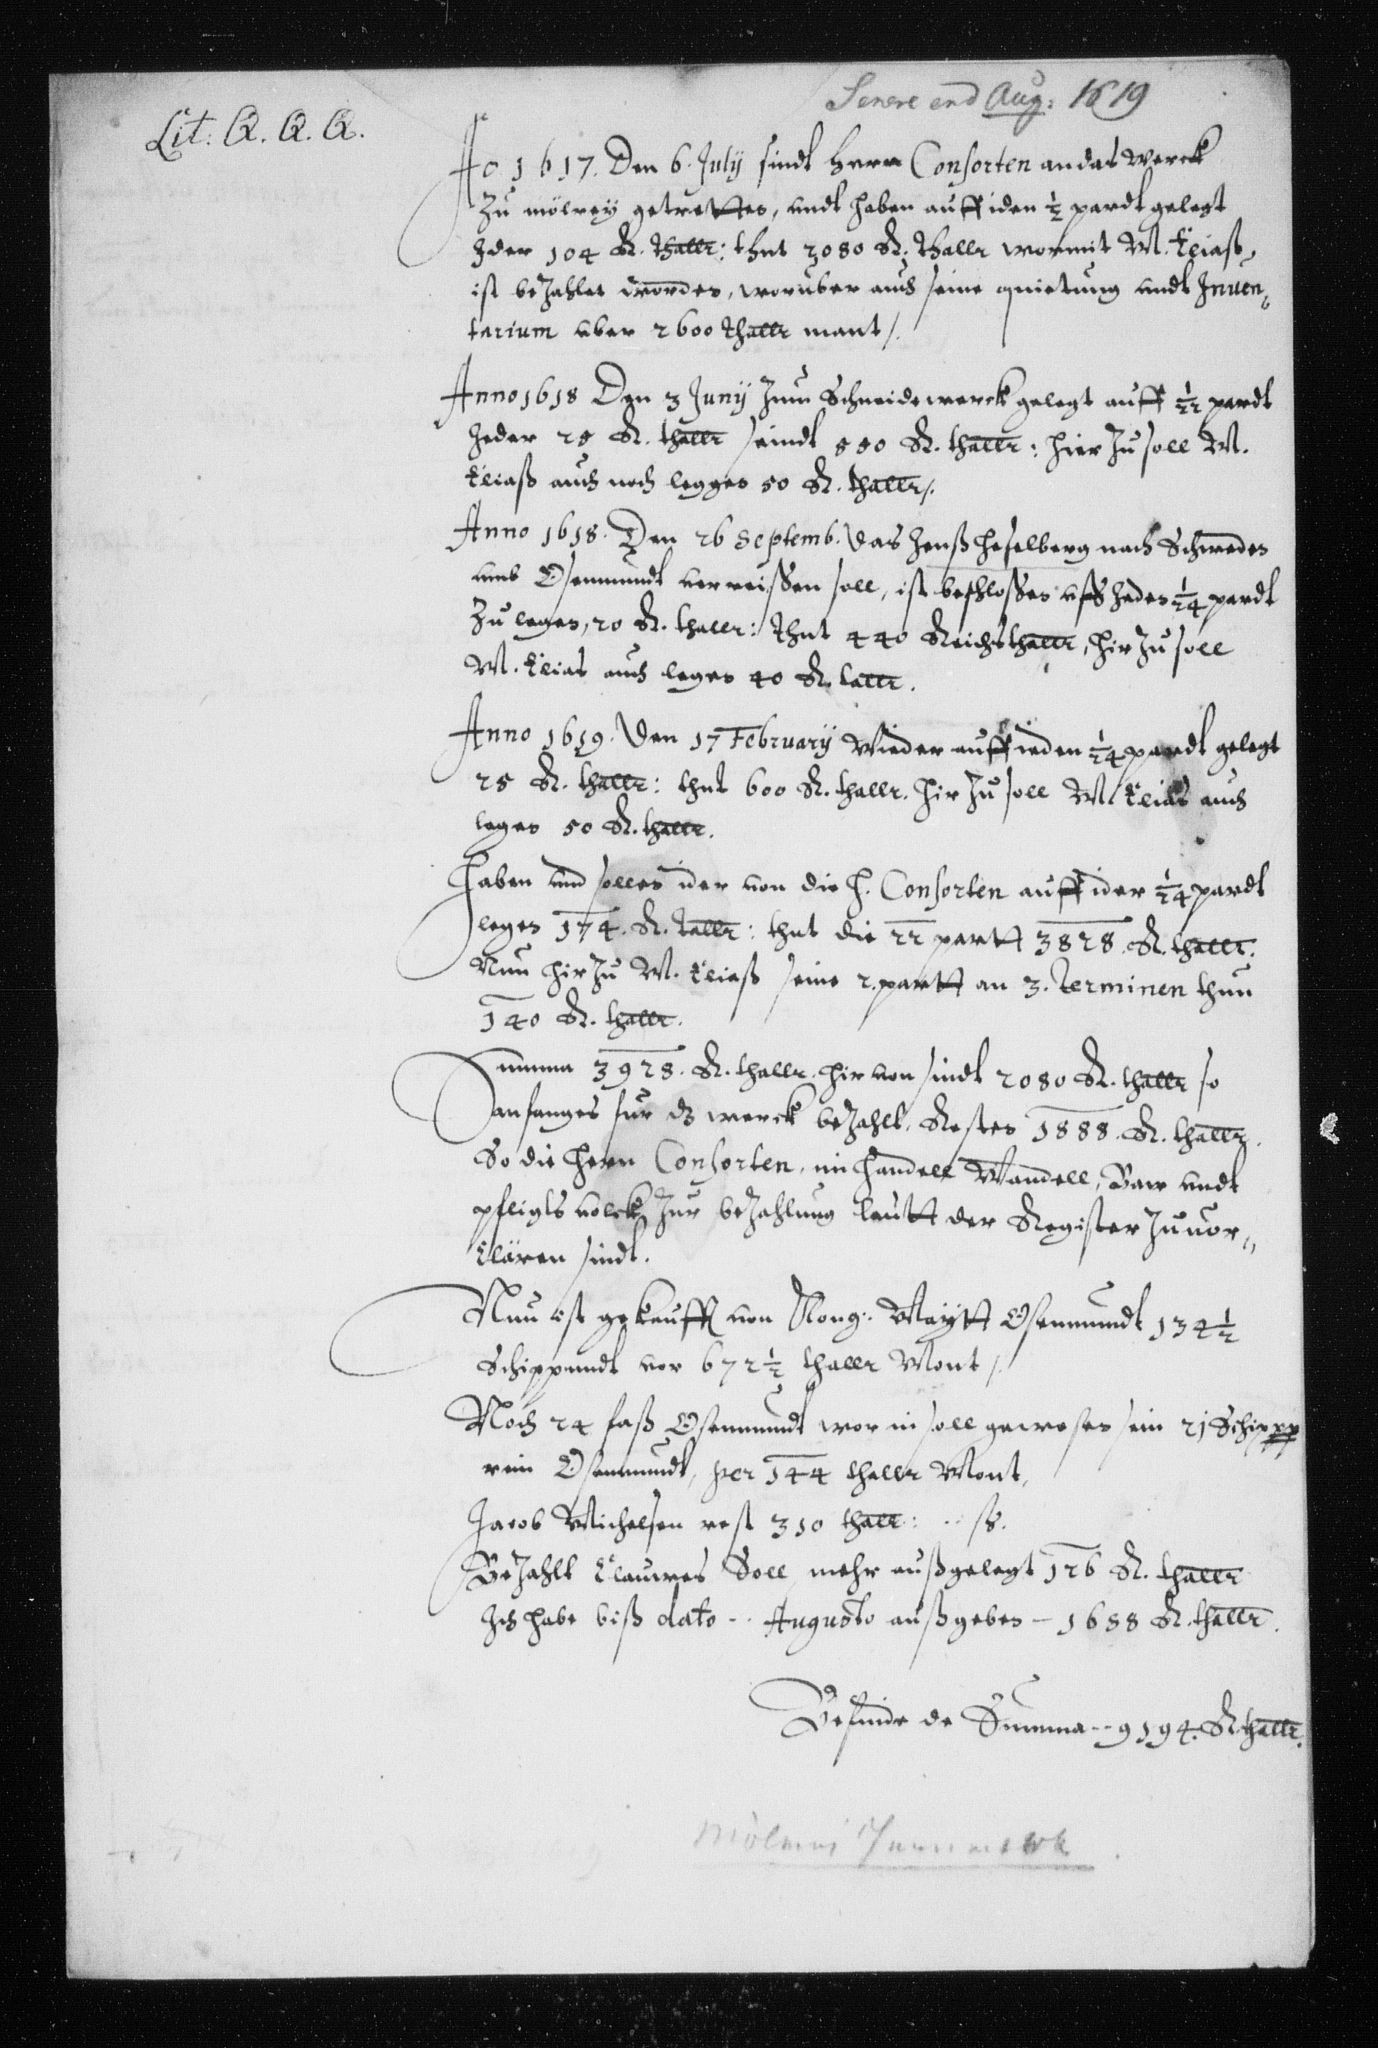 Senere end Aug: 1619
Lit: Q. Q. Q.
Ao 1617. Den 6. July sindt herrn Consorten an das Werck
Zu mölrey getretten, undt haben auff iden ½ pardt gelegt
Jder 104 R. thallr: thut 2080 R. thallr wormit M. Eliaß
ist bezahlet worden, woruber auch seine quietung undt Inuen„
tarium uber 2600 thallr mant/.
Anno 1618 Den 3 Junij zum Schneidewerck gelegt auff 1/22 pardt
Jeder 25 R. thallr seindt 550 R. thallr: hier zu soll M.
Eliaß auch noch leggen 50 R. thallr/.
Anno 1618. Den 26 Septemb. Das Henß Heselberg nach Schweden
umb Osemundt verreissen soll, ist beschlossen uff Jeden 1/24 pardt
Zu legen, 20 R. thallr: thut 440 Reichsthallr, hir zu soll
M. Elias auch legen 40 R. tallr.
Anno 1619. Den 17 February Wieder auff ieden 1/24 pardt gelegt
25 R. thallr: thut 600 R. thallr. hir zu soll M. Elias auch
legen 50 R. thallr.
Haben und sollen ider von die H. Consorten auff ider 1/24 pardt
legen 174. R. tallr: thut die 22 partt 3828. R. thallr.
Nun hir zu M. Eliaß seine 2. partt an 3. Terminen thun
140 R. thallr.
Summa 3928. R. thallr. hir von sindt 2080 R. thallr so
anfanges fur dz werck bezahlt. Resten 1888. R. thallr.
So die hern Consorten, im handell Wandell, Baw undt
volck zur bezahlung lautt der Register zu uor„
klären sindt.
Nun ist gekaufft von Mong: Maytt Osemundt 134 ½
Schippundt vor 672 ½ thallr Mont/.
Noch 24 faß Osemundt wor in soll gewesen sein 21 Schipp
rein Osemundt, per 144 thallr Mont.
Jacob Michelsen rest 310 thallr: .. ß.
Bezahlt Klauwes Soll mehr außgelegt 126 R. thallr
Ich habe biß dato -- Augusto außgeben - 1688 R. thallr.
Befinde de Summa -- 9194. R. thallr.